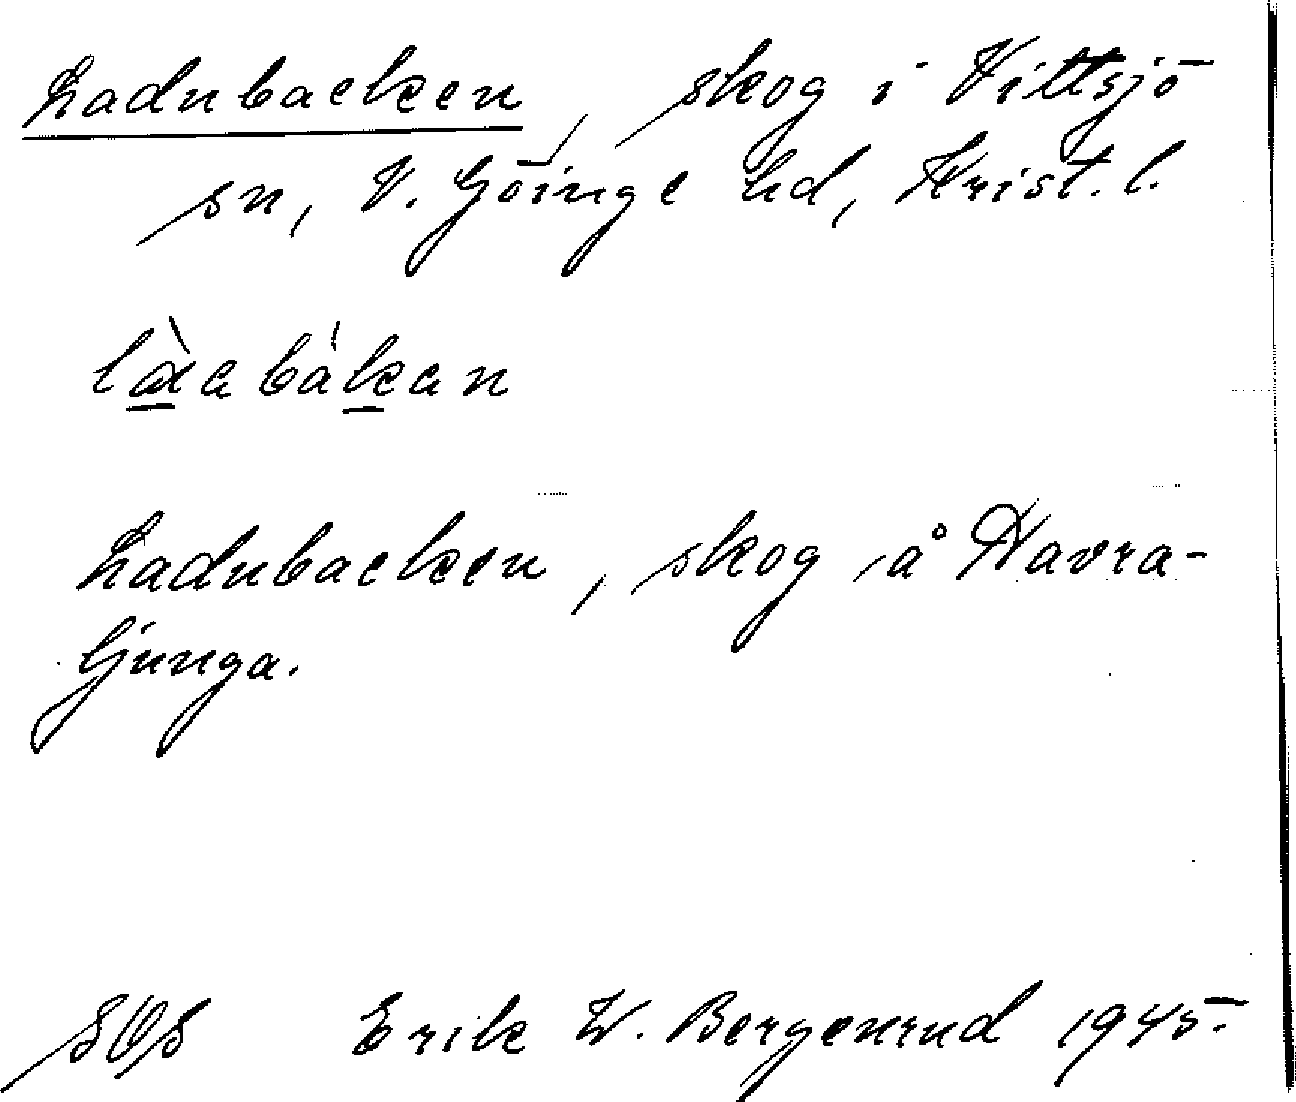 Ladubacken, skog i Vittsjö
sn, V. Göinge hd, Krist. l.
làabákan
Ladubacken, skog å Havra-
ljunga.
SOS Erik W. Bergenrud 1945.